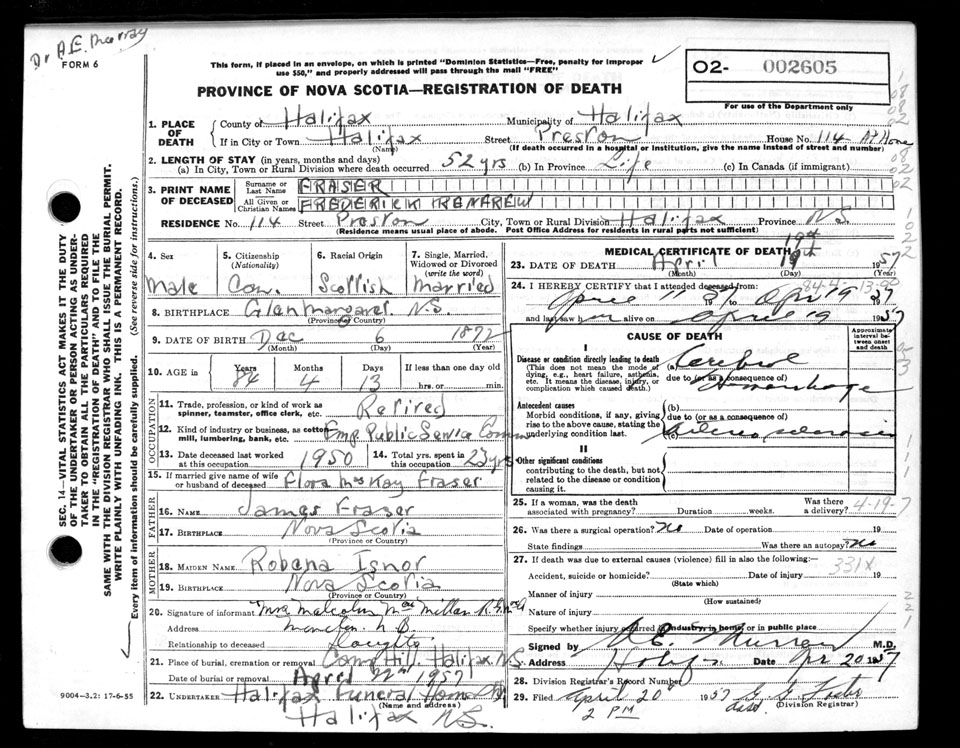 Dr A.E. Murray
FORM 6
This form, if placed in an envelope, on which is printed "Dominion Statistics—Free, penalty for improper
use $50," and properly addressed will pass through the mail "FREE"
O2- 002605
For use of the Department only
PROVINCE OF NOVA SCOTIA—REGISTRATION OF DEATH
1. PLACE OF DEATH
County of Halifax Municipality of Halifax
If in City or Town Halifax Street Preston House No. 114 At Home
(Name) (If death occurred in a hospital or institution, give the name instead of street and number)
2. LENGTH OF STAY (in years, months and days)
(a) In City, Town or Rural Division where death occurred 52 yrs (b) In Province Life (c) In Canada (if immigrant)
3. PRINT NAME OF DECEASED
Surname or Last Name FRASER
All Given or Christian Names FREDERICK RENFREW
RESIDENCE No. 114 Street Preston City, Town or Rural Division Halifax Province N.S.
(Residence means usual place of abode. Post Office Address for residents in rural parts not sufficient)
4. Sex Male
5. Citizenship (Nationality) Can.
6. Racial Origin Scottish
7. Single, Married, Widowed or Divorced (write the word) Married
8. BIRTHPLACE Glen Margaret. N.S.
(Province or Country)
9. DATE OF BIRTH Dec 6 1872
(Month) (Day) (Year)
10. AGE in Years Months Days If less than one day old
84 4 13 hrs. or min.
OCCUPATION
11. Trade, profession, or kind of work as
spinner, teamster, office clerk, etc. Retired
12. Kind of industry or business, as cotton
mill, lumbering, bank, etc. Emp. Public Service Comm
13. Date deceased last worked
at this occupation 1950
14. Total yrs. spent in
this occupation 23 yrs
15. If married give name of wife
or husband of deceased Flora McKay Fraser
FATHER
16. NAME James Fraser
17. BIRTHPLACE Nova Scotia
(Province or Country)
MOTHER
18. MAIDEN NAME Robena Isnor
19. BIRTHPLACE Nova Scotia
(Province or Country)
20. Signature of informant Mrs Malcolm MacMillan
Address Moncton N.B.
Relationship to deceased
21. Place of burial, cremation or removal Camp Hill. Halifax N.S.
Date of burial or removal April 22nd 1957
22. UNDERTAKER Halifax Funeral Home
(Name and address)
Halifax N.S.
9004-3,2: 17-6-55
SEC. 14—VITAL STATISTICS ACT MAKES IT THE DUTY
OF THE UNDERTAKER OR PERSON ACTING AS UNDER-
TAKER TO OBTAIN ALL THE PARTICULARS REQUIRED
IN THE "REGISTRATION OF DEATH" AND TO FILE THE
SAME WITH THE DIVISION REGISTRAR WHO SHALL ISSUE THE BURIAL PERMIT.
WRITE PLAINLY WITH UNFADING INK. THIS IS A PERMANENT RECORD.
Every item of information should be carefully supplied. (See reverse side for instructions.)
MEDICAL CERTIFICATE OF DEATH
23. DATE OF DEATH April 19th 1957
(Month) (Day) (Year)
24. I HEREBY CERTIFY that I attended deceased from:
April 11 57 to Apr 19 1957
and last saw h im alive on April 19 1957
CAUSE OF DEATH
Approximate interval between onset and death
I
Disease or condition directly leading to death
(This does not mean the mode of
dying, e.g., heart failure, asthenia,
etc. It means the disease, injury, or
complication which caused death.)
(a) Cerebral
due to (or as a consequence of)
Hemorrhage
Antecedent causes
Morbid conditions, if any, giving
rise to the above cause, stating the
underlying condition last.
(b)
due to (or as a consequence of)
(c) Arteriosclerosis
II
Other significant conditions
contributing to the death, but not
related to the disease or condition
causing it.
25. If a woman, was the death
associated with pregnancy? Duration weeks. Was there
a delivery? 4-19-7
26. Was there a surgical operation? no Date of operation 19
State findings Was there an autopsy? no
27. If death was due to external causes (violence) fill in also the following:—
331X
Accident, suicide or homicide? Date of injury 19
(State which)
Manner of injury
(How sustained)
Nature of injury
Specify whether injury occurred in industry, in home or in public place
Signed by A E Murray M.D.
Address Halifax Date Apr 20 1957
28. Division Registrar's Record Number
29. Filed April 20 1957
(Division Registrar)
2 PM